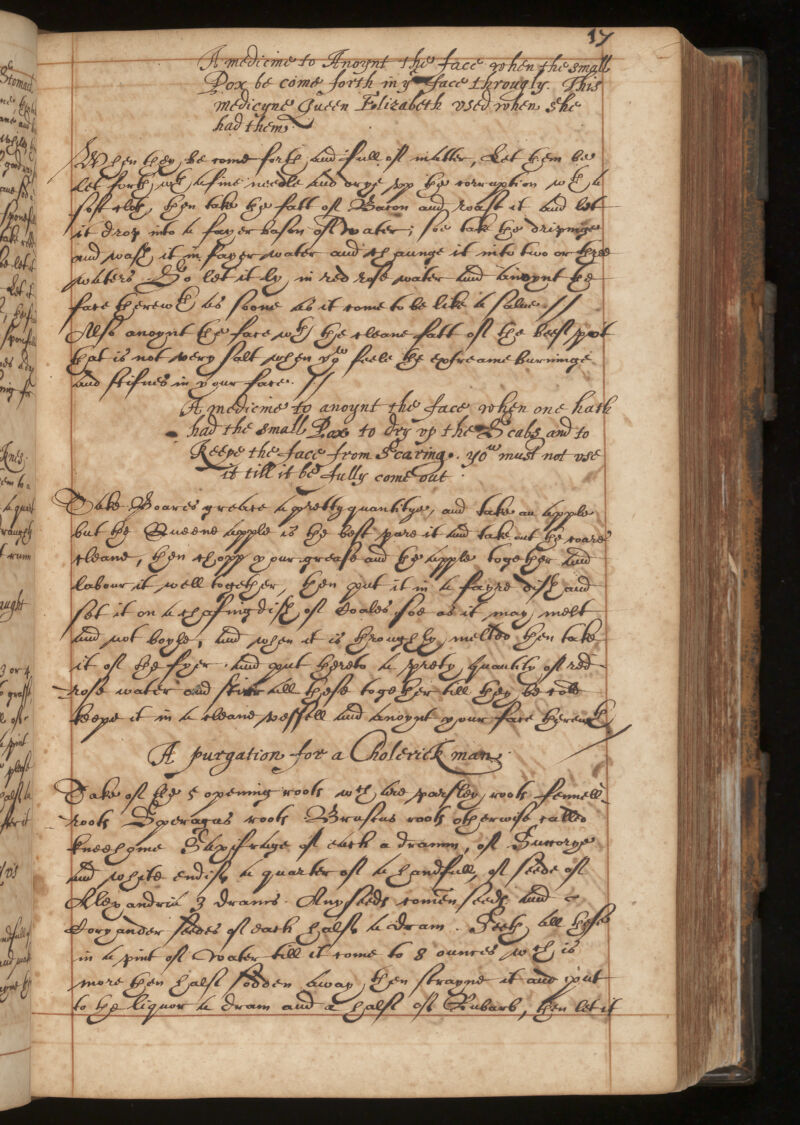 17
A medicine to Anoynt the face when the small
Pox be come forth in yͤ face througly. This
medicyne Queen Elizabeth vsed when she
had them
When they be come forth and full of matter, Let them be
let forth wᵗʰ a fine needle and drye vp the corruption wᵗʰ a
soft cloth, then take the fatt of Bacon and roast it and let
it drop into a fayer bason of water; soe take the dripinge
and wash it in fayer water and chaunge it into two or three
waters. So let it ly in red rose water and anoynt the
face therewᵗʰ as soone as it come to be like a salue //
Also anoynt the face wᵗʰ the cleane fatt of the beef pott
that is not very salt when yoᵘ feele the extreame burninge
and stifnes in your face. //
A medicine to anoynt the face when one hath
had the small Pox to dry vp the Scabs and to
Keepe the face from Scaringe. yoᵘ must not vse
it till it be fully come out
Take Boares grease a pretty quantitye, and take an apple
but the Queene apple is the best pare it and take out the coare
cleane, then chopp your grease and the apple together and
labour it well together, then put it in a fayre dish and
set it on a chafingdish of Coales soe as it may melt
and not boyle, and when it is throughly melted then take
it of the fyer and put thereto a prety quantity of red
rose water and stirr all these together till they be cold
keepe it in a cleane vessell and anoynt your face therewᵗʰ
A purgation for a Cholerick man
Take of the 5 opening roots wᶜʰ are parsley roots fennell
roots Speragus roots Bruscus roots otherwise called
kneeholme Saxifrage of each a dramm, of Succorye
and white endife a quarter of a handfull, of seede of
Alexandria 3 drams. Anyseeds comen seeds and
Coryander seedes of each halfe a dram. Seeth all these
in a pint of water till it come to 8 ounces wᶜʰ is
more then halfe sodden away, then strayne it and put
to the liquor a dram and a halfe of Rubarb, then let it